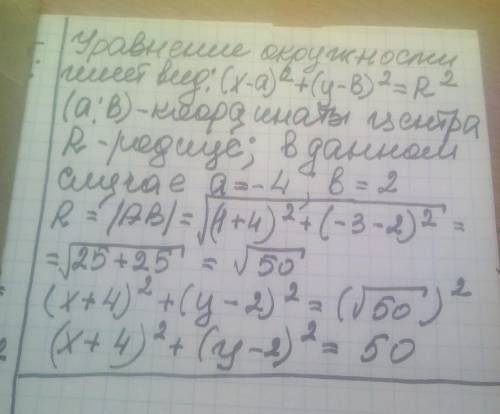 Уравнение окружности
имеет вид: (x-a)²+(y-в)²=R²
(a;в)-координаты центра
R-радиус; в данном
случае a=-4; в=2
R=|AB|=√(1+4)²+(-3-2)²=
=√25+25 = √50
(x+4)²+(y-2)²=(√50)²
(x+4)²+(y-2)²= 50